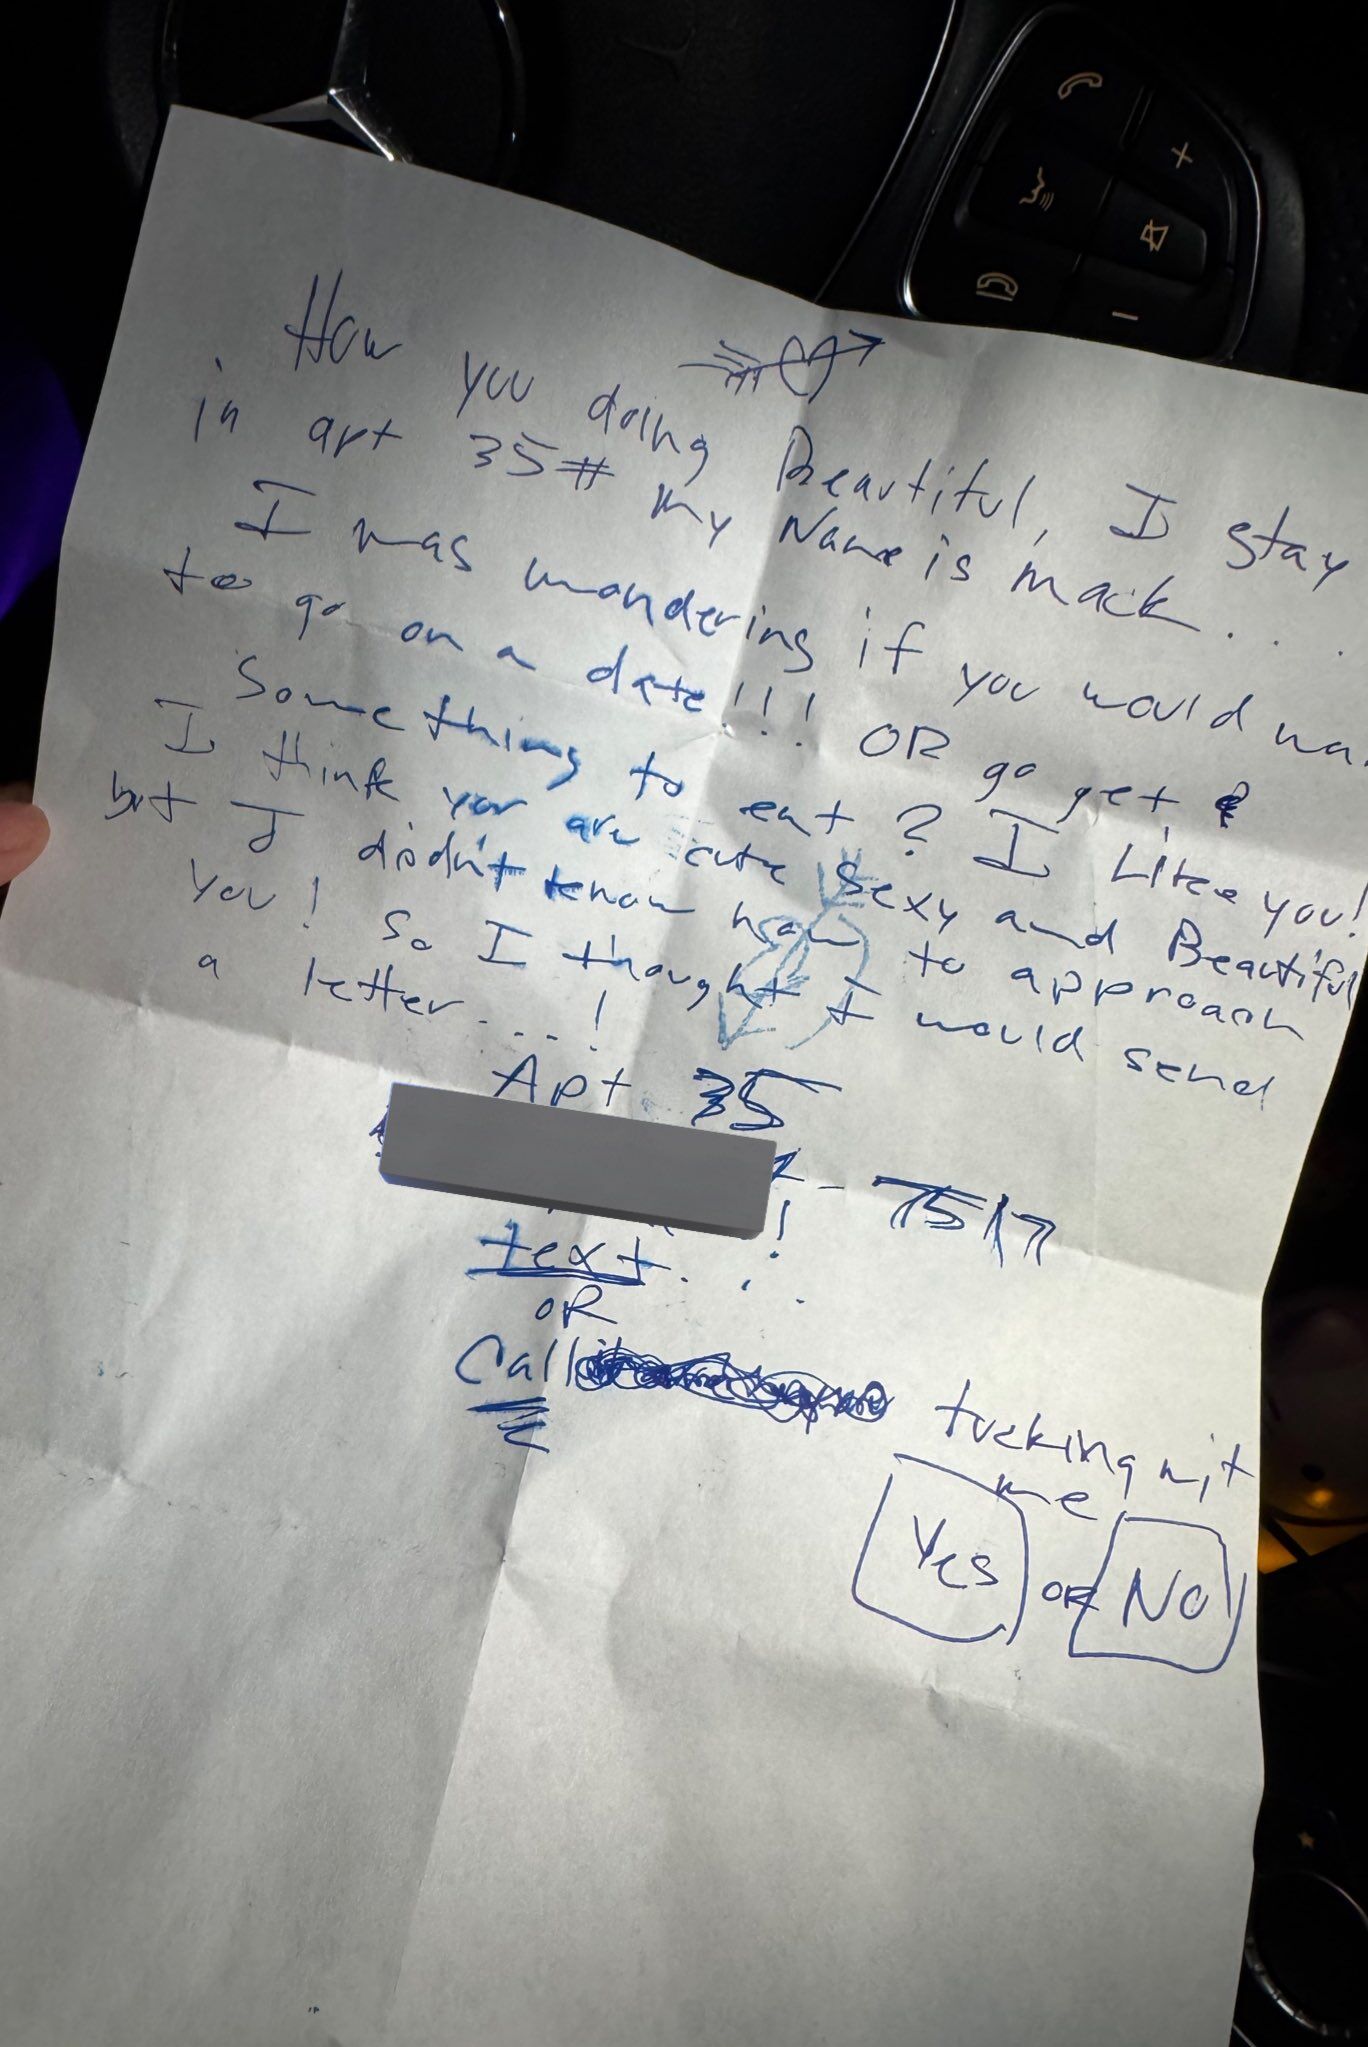 How you doing Beautiful, I stay
in apt 35# my Name is mack...
I was wondering if you would wa
to go on a date!!! OR go get
Something to eat? I Like you!
I think you are cute Sexy and Beautiful
but I didn't know how to approach
you! So I thought I would send
a letter....!
Apt 35
- 7517
text. !
OR
Call
fucking wit
me
Yes OR No